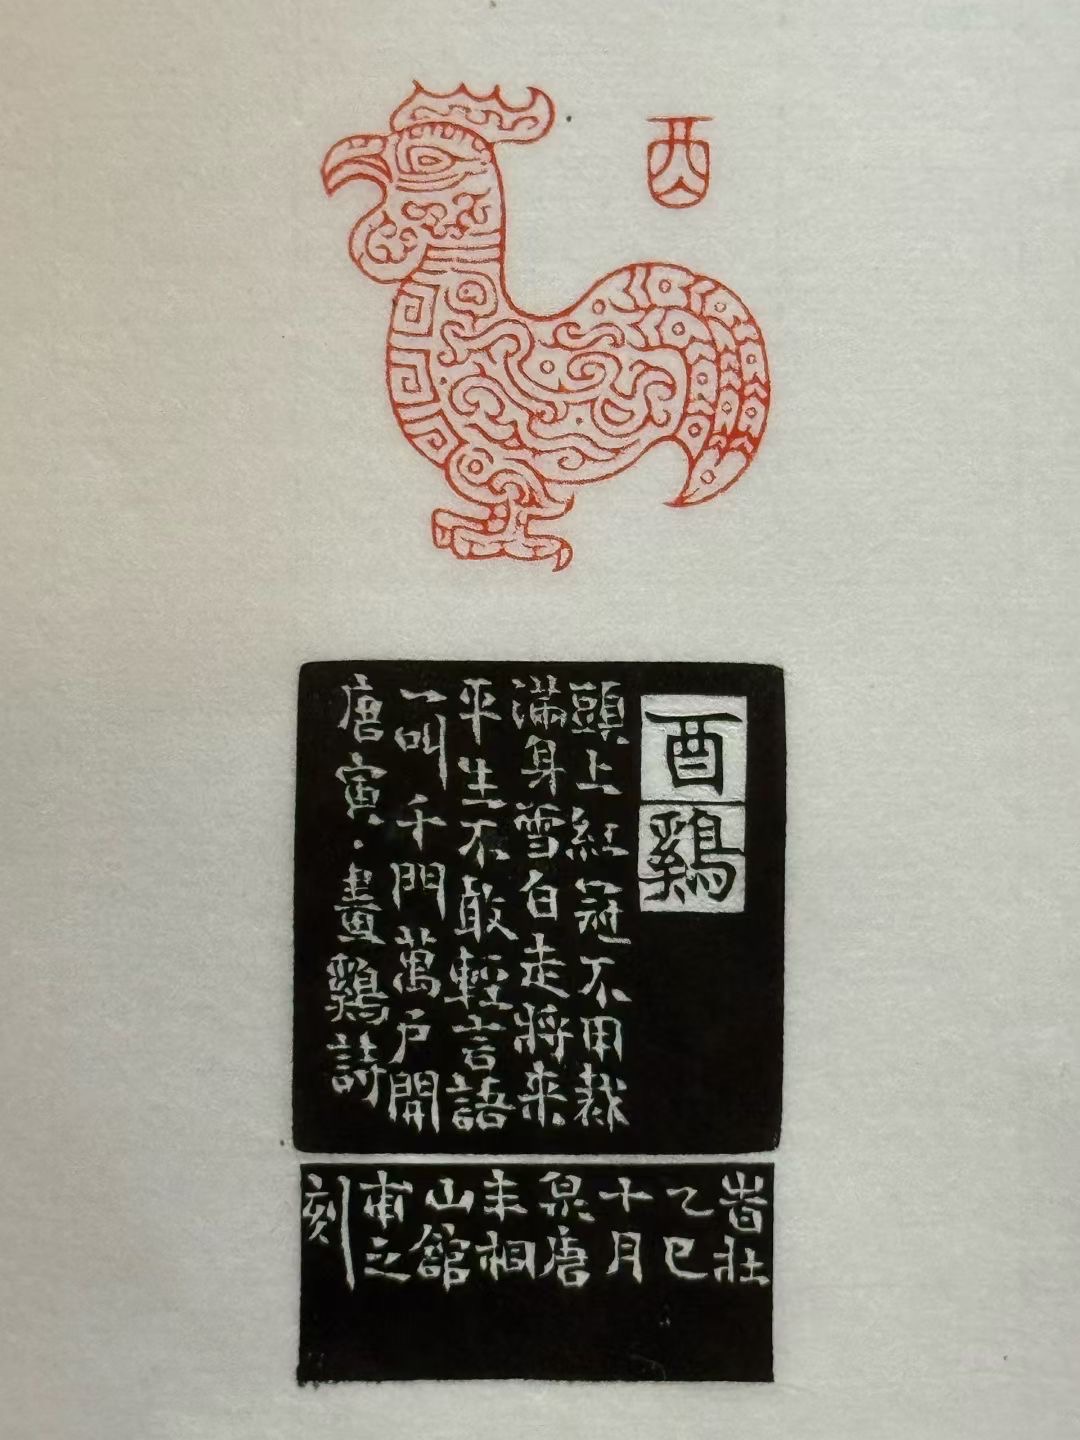 酉
酉鷄
頭上紅冠不用裁
滿身雪白走將来
平生不敢輕言語
一叫千門萬户開
唐寅·畫鷄詩
旹在
乙巳
十月
泉唐
耒相
山館
甫之
刻